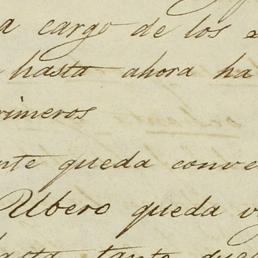 a cargo de los
hasta ahora ha
rimeros
nte queda conve
Ubero queda
hasta tanto